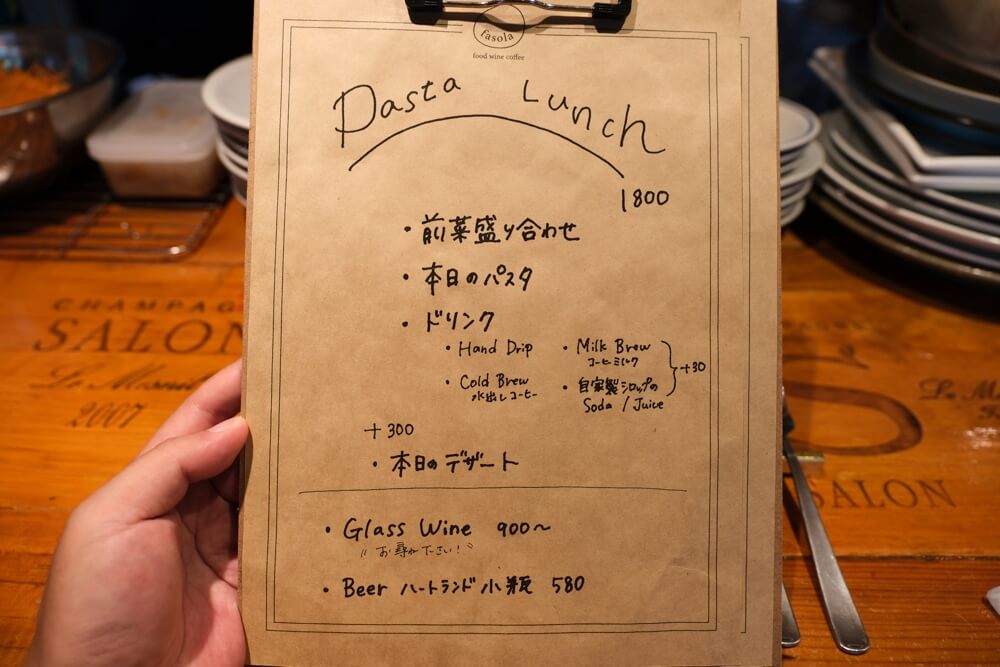 fasola
food wine coffee
Pasta Lunch
1800
・前菜盛り合わせ
・本日のパスタ
・ドリンク
・Hand Drip
・Cold Brew
水出しコーヒー
・Milk Brew
コーヒーミルク
・自家製シロップの
Soda / Juice
+30
+300
・本日のデザート
・Glass Wine 900〜
"お尋ね下さい!"
・Beer ハートランド小瓶 580
CHAMPAG
SALON
2007
SALON